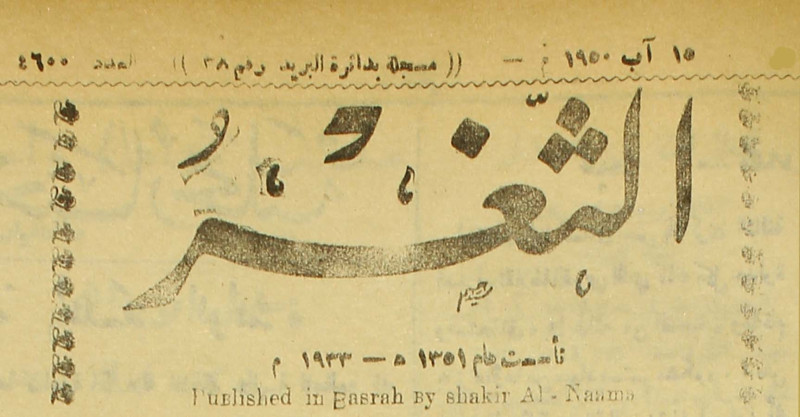 ١٥ آب ١٩٥٠ م — (( مسجلة بدائرة البريد رقم ٣٨ )) العدد ٤٦٠٠
الثَّغْرُ
تأسست عام ١٣٥١ ه — ١٩٣٣ م
Published in Basrah By shakir Al - Naama